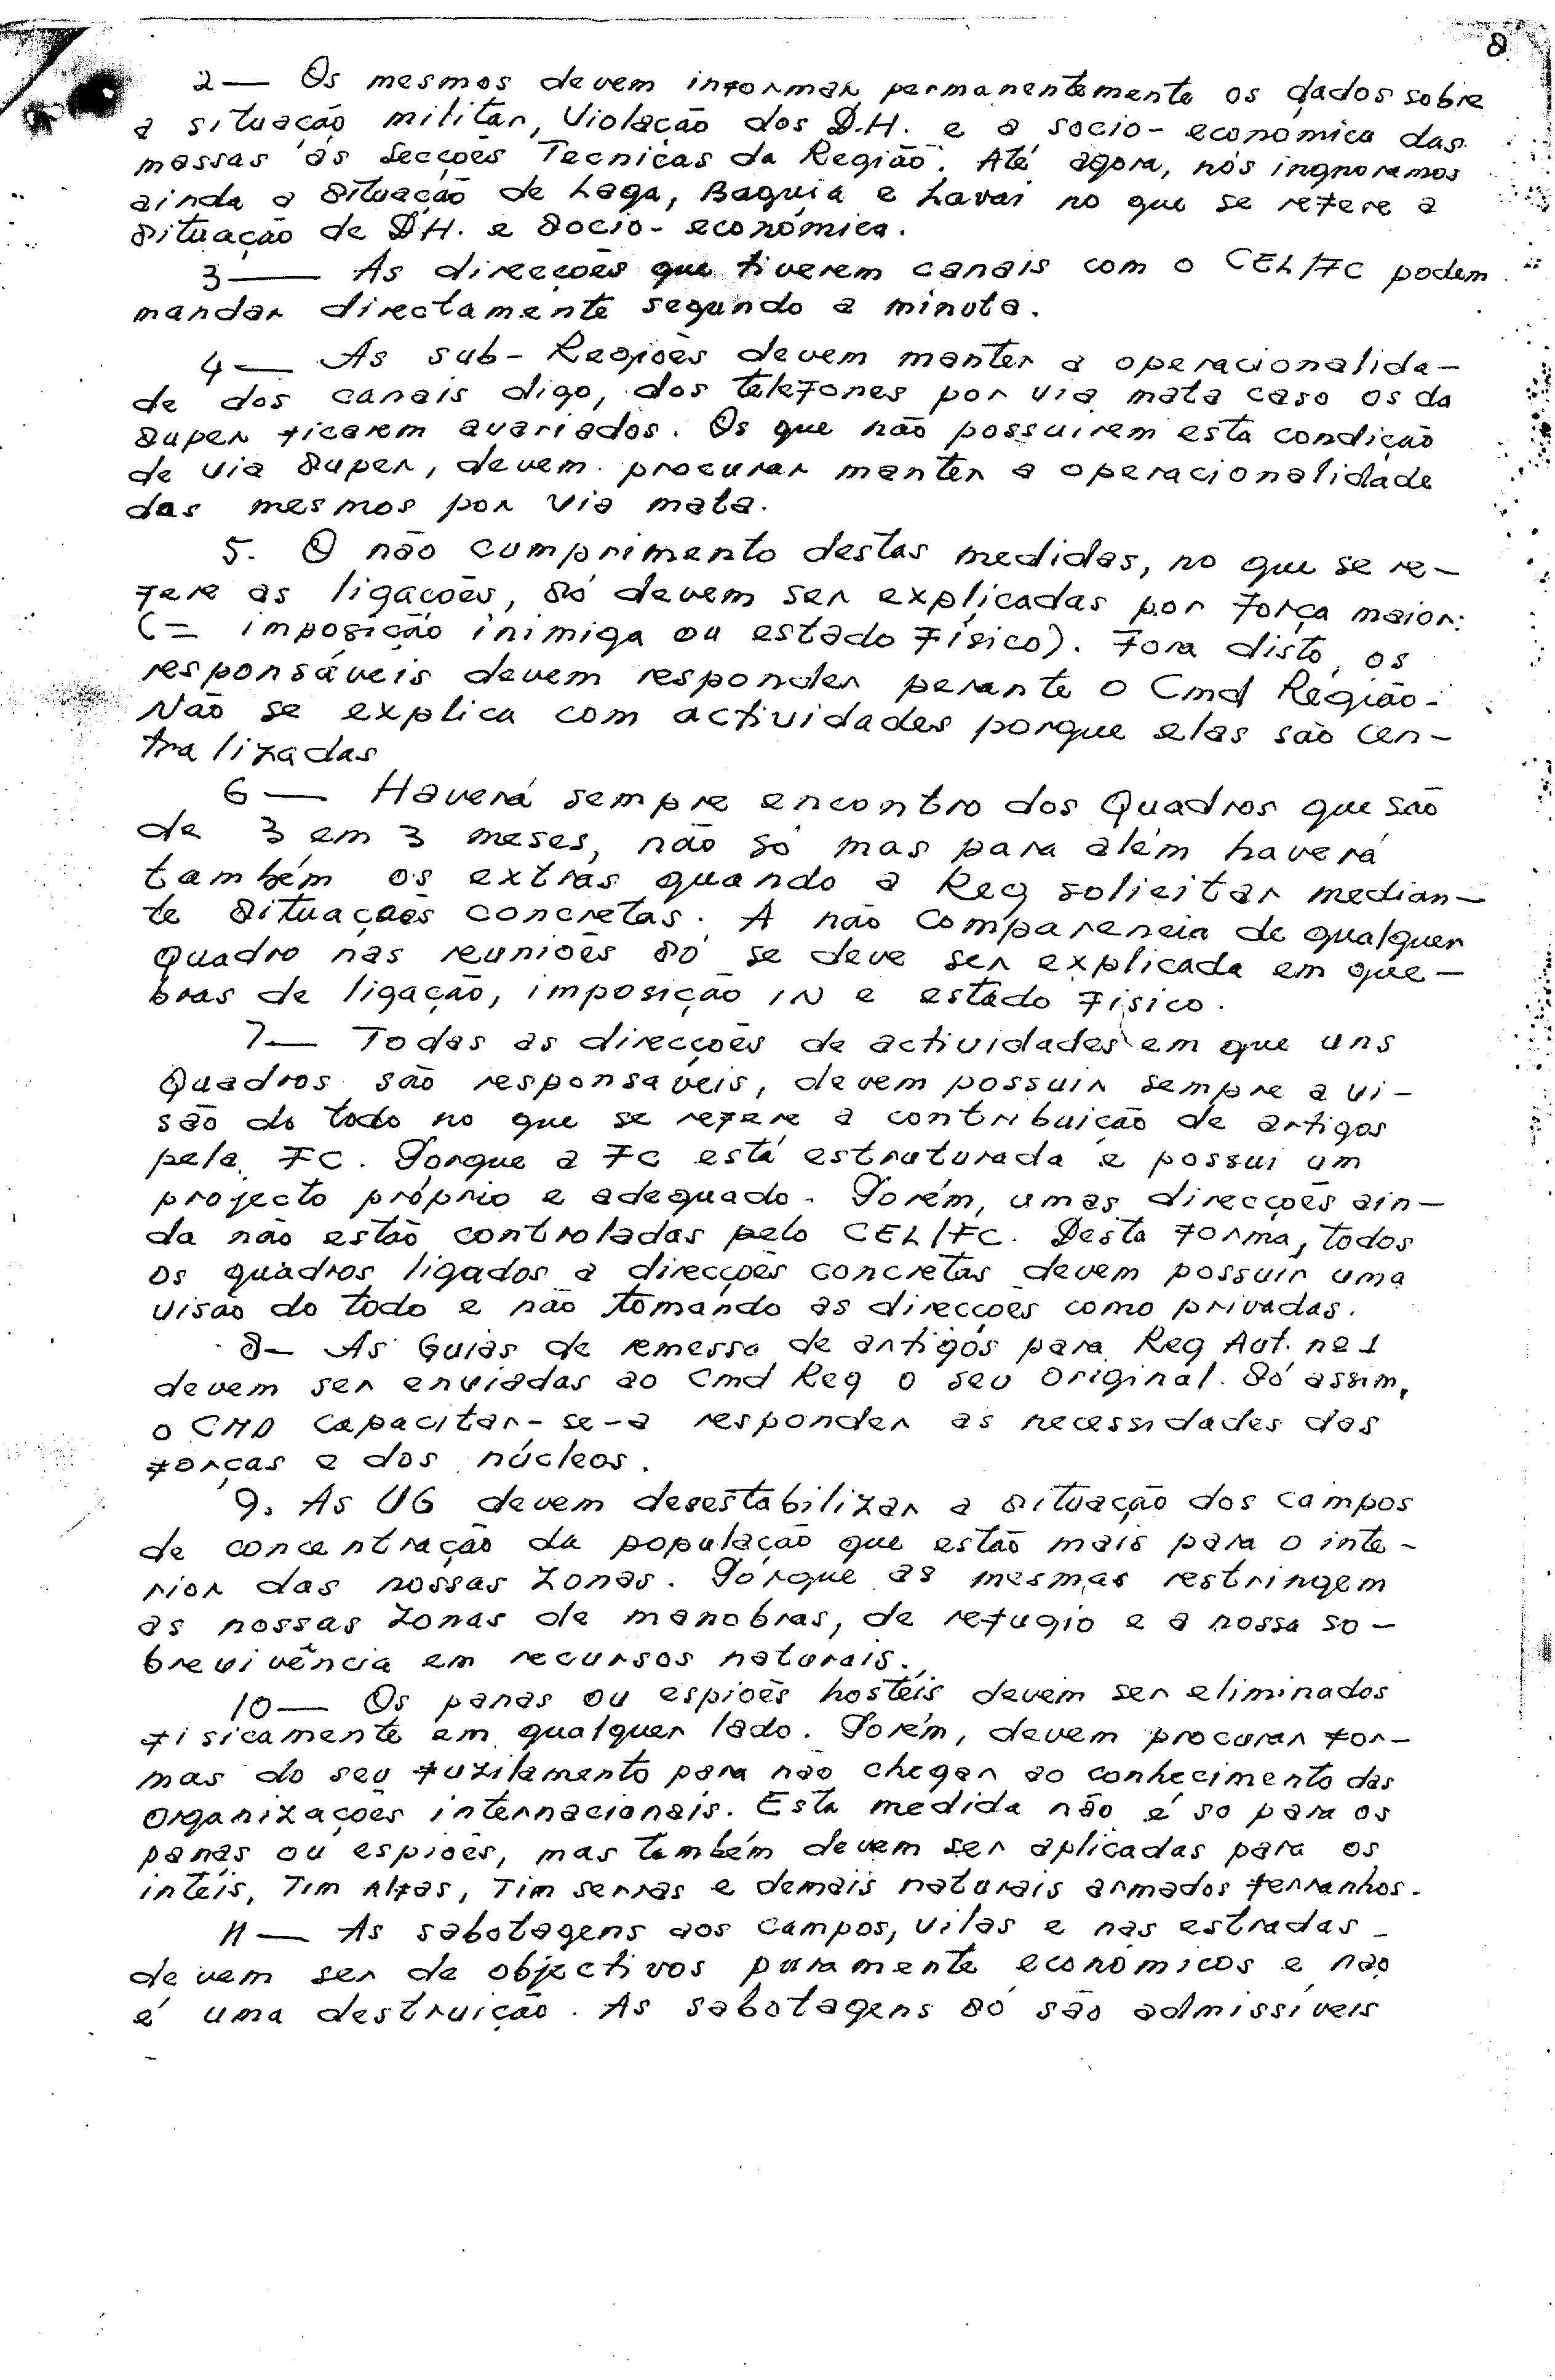 8
2— Os mesmos devem informar permanentemente os dados sobre
a situação militar, Violação dos D.H. e a socio-economica das
massas às Secções Tecnicas da Região. Até agora, nós ingnoramos
ainda a Situação de Laga, Baguia e Lavai no que se refere a
Situação de D.H. e Socio-económica.
3— As direcções que tiverem canais com o CEL/FC podem
mandar directamente segundo a minuta.
4— As sub-Regiões devem manter a operacionalida-
de dos canais digo, dos telefones por via mata caso os da
Super ficarem avariados. Os que não possuirem esta condição
de via Super, devem procurar manter a operacionalidade
das mesmos por via mata.
5. O não cumprimento destas medidas, no que se re-
fere as ligações, só devem ser explicadas por força maior:
(= imposição inimiga ou estado físico). Fora disto, os
responsáveis devem responder perante o Cmd Região.
Não se explica com actividades porque elas são cen-
tralizadas
6— Haverá sempre encontro dos Quadros que são
de 3 em 3 meses, não só mas para além haverá
também os extras quando a Reg solicitar median-
te Situações concretas. A não comparencia de qualquer
Quadro nas reuniões só se deve ser explicada em que-
bras de ligação, imposição IN e estado físico.
7— Todas as direcções de actividades em que uns
Quadros são responsaveis, devem possuir sempre a vi-
são do todo no que se refere a contribuição de artigos
pela FC. Porque a FC está estruturada e possui um
projecto próprio e adequado. Porém, umas direcções ain-
da não estão controladas pelo CEL/FC. Desta forma, todos
os quadros ligados a direcções concretas devem possuir uma
visão do todo e não tomando as direcções como privadas.
8— As Guias de remessa de artigos para Reg Aut. nº 1
devem ser enviadas ao Cmd Reg o seu original. Só assim,
o CMD capacitar-se-a responder as necessidades das
forças e dos núcleos.
9. As UG devem desestabilizar a situação dos campos
de concentração da população que estão mais para o inte-
rior das nossas zonas. Porque as mesmas restringem
as nossas zonas de manobras, de refugio e a nossa so-
brevivência em recursos naturais.
10— Os panas ou espiões hostéis devem ser eliminados
fisicamente em qualquer lado. Porém, devem procurar for-
mas do seu fuzilamento para não chegar ao conhecimento das
Organizações internacionais. Esta medida não é so para os
panas ou espiões, mas também devem ser aplicadas para os
intéis, Tim Alfas, Tim serras e demais naturais armados ferranhos.
11— As sabotagens aos campos, vilas e nas estradas
devem ser de objectivos puramente económicos e não
é uma destruição. As sabotagens só são admissíveis